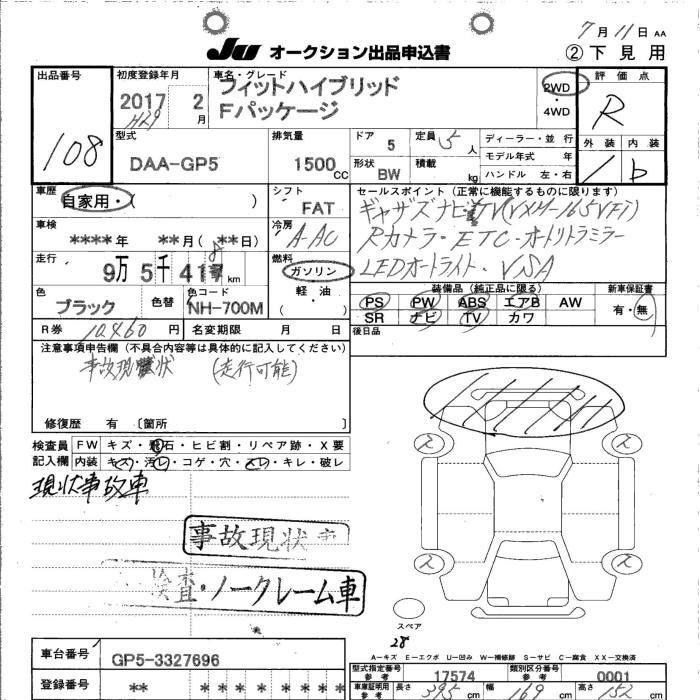 7月11日 AA
JU オークション出品申込書
② 下見用
出品番号
108
初度登録年月
2017 2月
H29
車名・グレード
フィットハイブリッド
Fパッケージ
2WD
・
4WD
評価点
R
外装 内装
1 b
型式
DAA-GP5
排気量
1500 CC
ドア 5
定員 5人
形状 BW
積載 kg
ディーラー・並行
モデル年式 年
ハンドル 左・右
車歴
自家用・( )
シフト
FAT
車検
****年 **月(**日)
冷房
A-AC
走行
9万5千41 km
8
燃料
ガソリン
軽油
( )
色
ブラック
色替
色コード
NH-700M
R券 10460円
名変期限 月 日
セールスポイント(正常に機能するものに限ります)
ギャザズナビTV(VXM-165VFi)
Rカメラ・ETC・オートリトラミラー
LEDオートライト・VSA
装備品(純正品に限る)
PS PW ABS エアB AW
SR ナビ TV カワ
新車保証書
有・無
後日品
注意事項申告欄(不具合内容等は具体的に記入してください)
事故現状 (走行可能)
修復歴 有〔箇所 〕
検査員
記入欄
FW キズ・飛石・ヒビ割・リペア跡・X要
内装 キズ・汚レ・コゲ・穴・スレ・キレ・破レ
現状事故車
事故現状車
検査・ノークレーム車
スペア
28
A－キズ E－エクボ U－凹み W－補修跡 S－サビ C－腐食 XX－交換済
車台番号
GP5-3327696
登録番号
** * * * * * * *
型式指定番号
参考
17574
類別区分番号
参考
0001
車庫証明用
参考
長さ 395 cm 幅 169 cm 高さ 152 cm